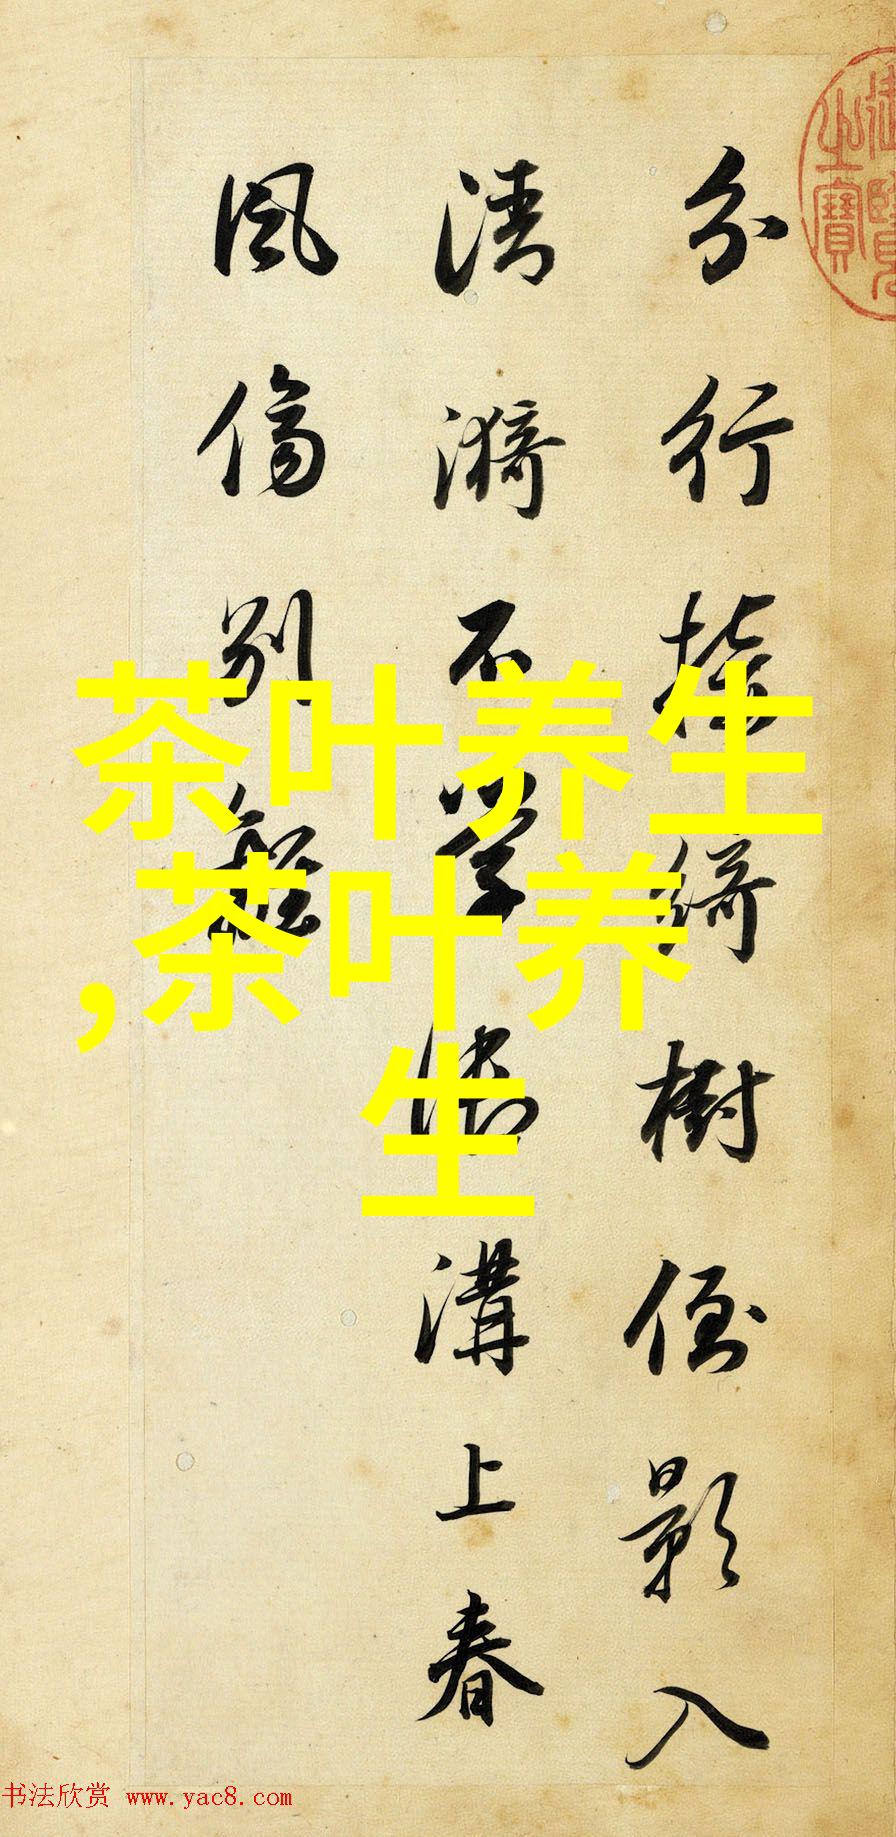 茶叶养生
,茶叶养
生
分行接綺樹倒影入
清漪不學御溝上春
風傷別離
御覽
之寶
书法欣赏 www.yac8.com